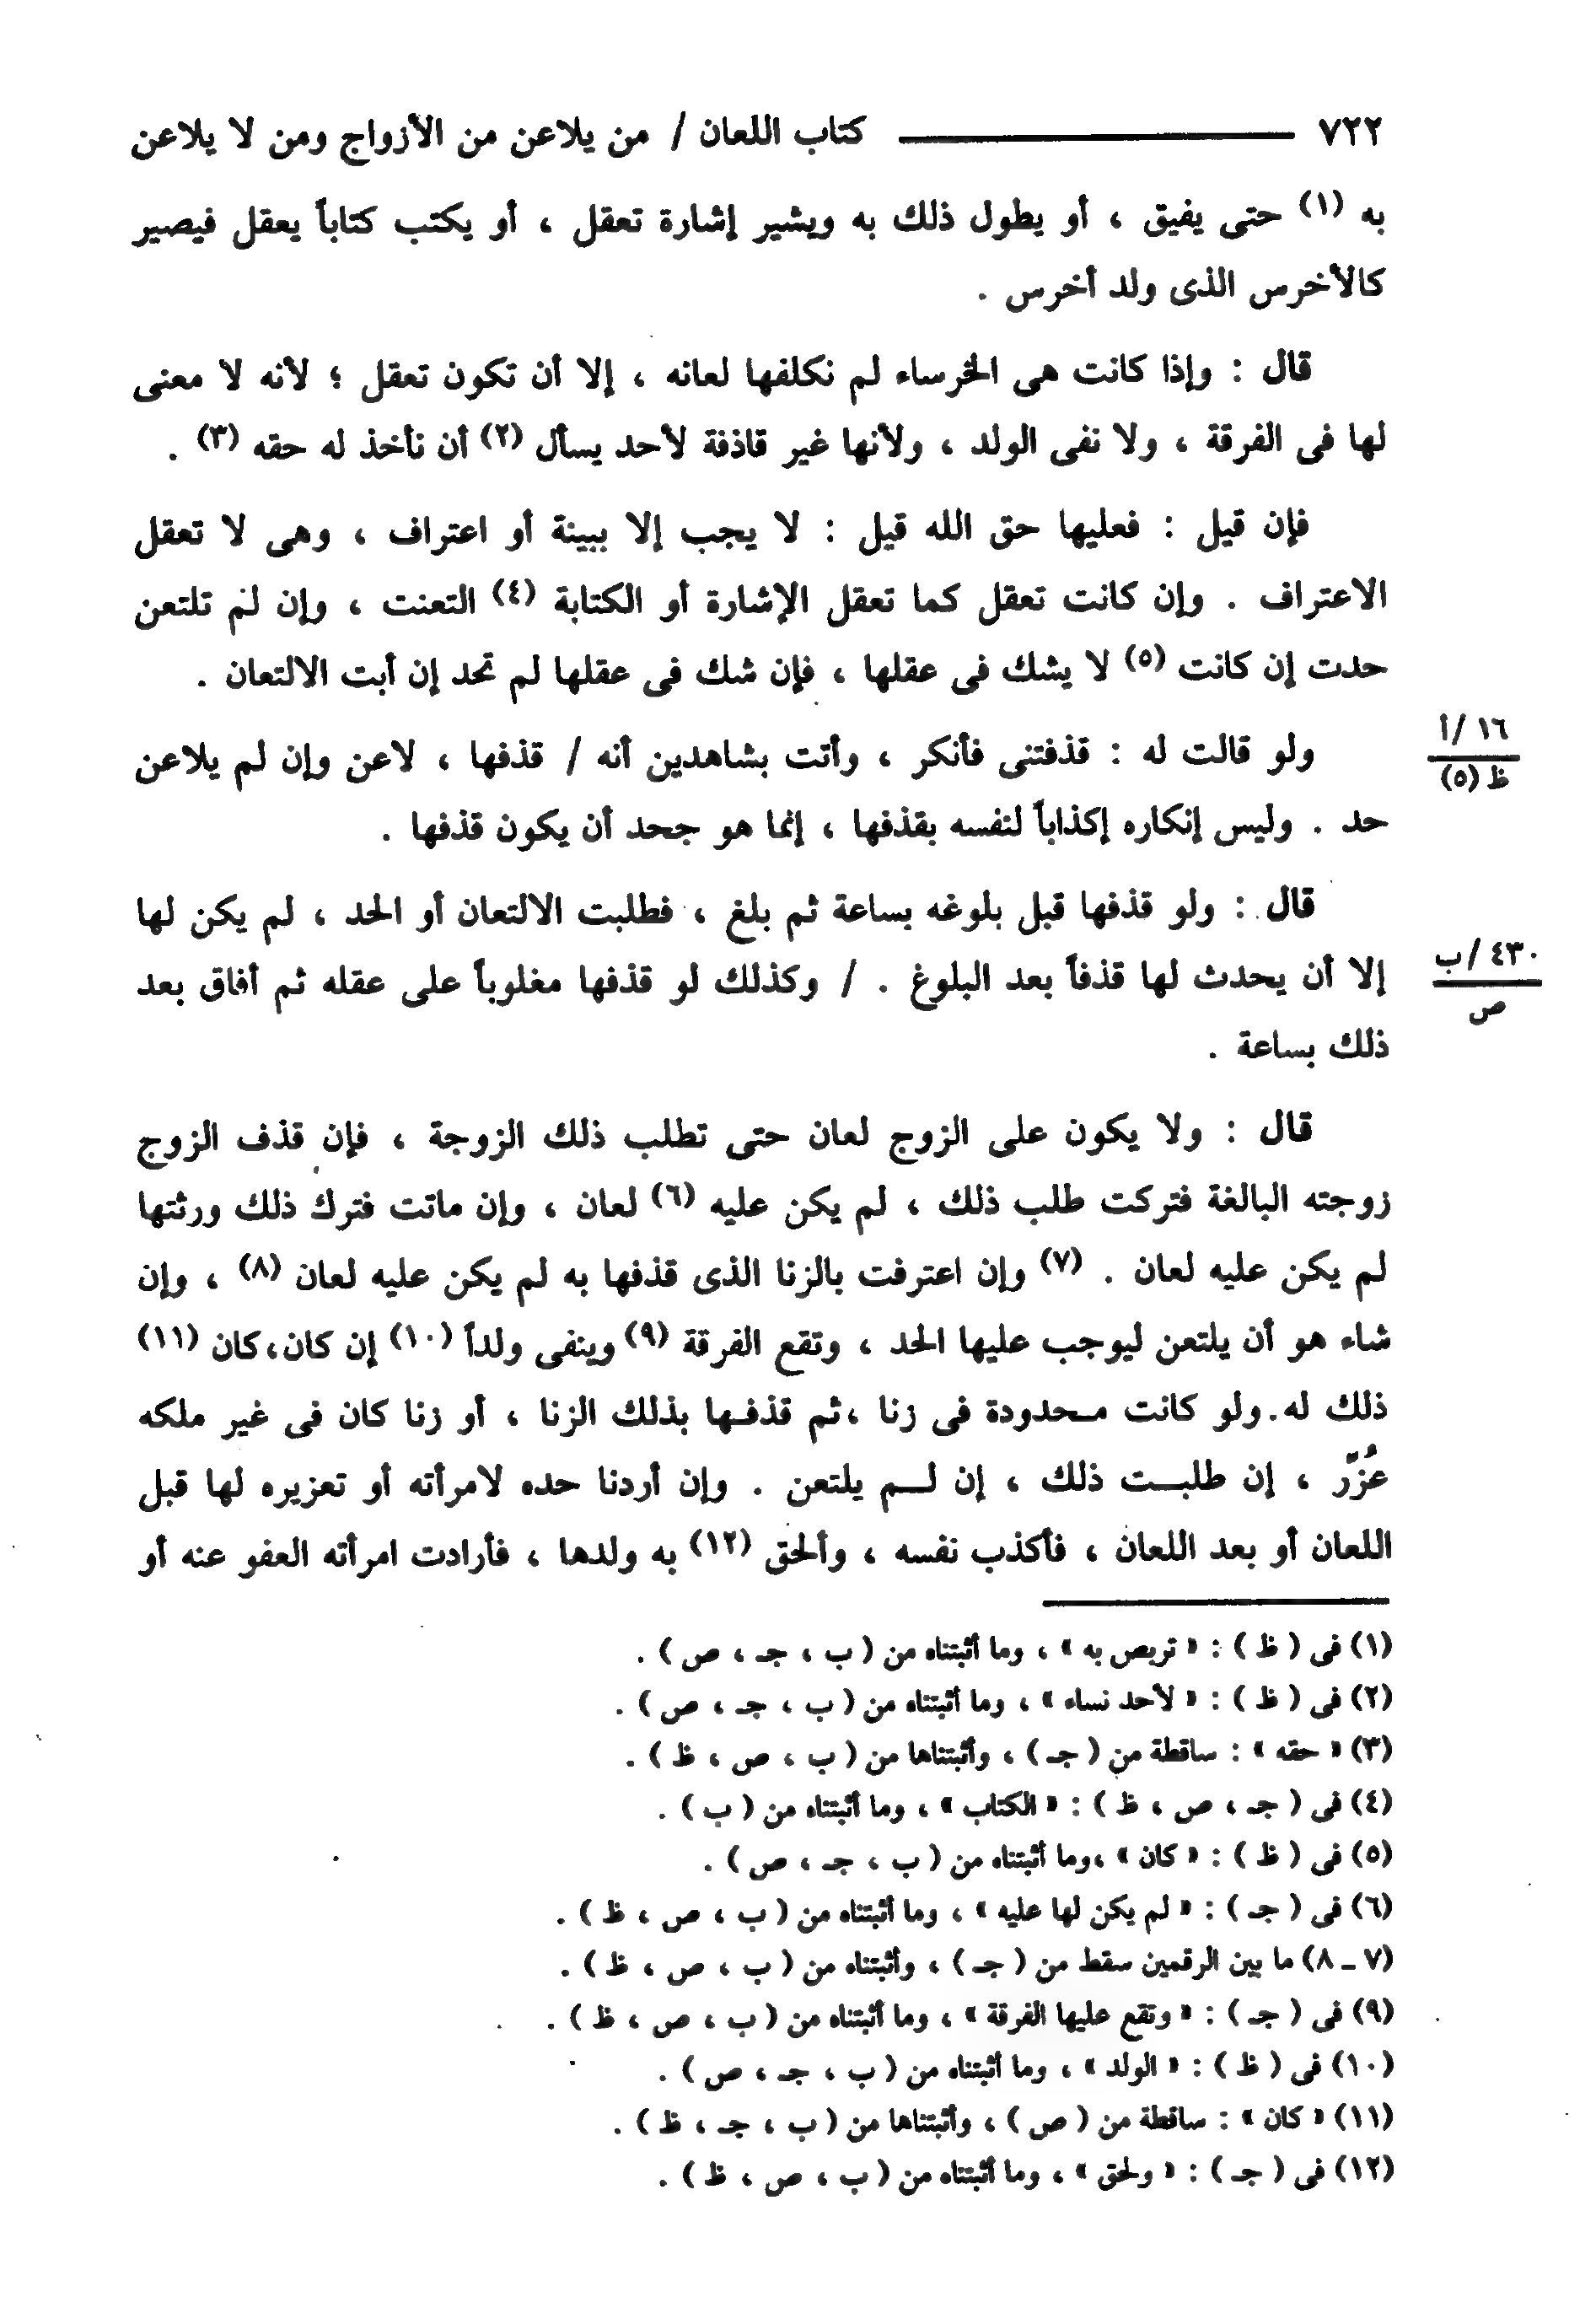 ٧٢٢ كتاب اللعان / من يلاعن من الأزواج ومن لا يلاعن
به (١) حتى يفيق ، أو يطول ذلك به ويشير إشارة تعقل ، أو يكتب كتاباً يعقل فيصير
كالأخرس الذى ولد أخرس .
قال : وإذا كانت هى الخرساء لم نكلفها لعانه ، إلا أن تكون تعقل ؛ لأنه لا معنى
لها فى الفرقة ، ولا نفى الولد ، ولأنها غير قاذفة لأحد يسأل (٢) أن نأخذ له حقه (٣) .
فإن قيل : فعليها حق الله قيل : لا يجب إلا ببينة أو اعتراف ، وهى لا تعقل
الاعتراف . وإن كانت تعقل كما تعقل الإشارة أو الكتابة (٤) التعنت ، وإن لم تلتعن
حدت إن كانت (٥) لا يشك فى عقلها ، فإن شك فى عقلها لم تحد إن أبت الالتعان .
ولو قالت له : قذفتنى فأنكر ، وأتت بشاهدين أنه / قذفها ، لاعن وإن لم يلاعن
١٦ /أ
ظ (٥)
حد . وليس إنكاره إكذاباً لنفسه بقذفها ، إنما هو جحد أن يكون قذفها .
قال : ولو قذفها قبل بلوغه بساعة ثم بلغ ، فطلبت الالتعان أو الحد ، لم يكن لها
إلا أن يحدث لها قذفاً بعد البلوغ . / وكذلك لو قذفها مغلوباً على عقله ثم أفاق بعد
٤٣٠ /ب
ص
ذلك بساعة .
قال : ولا يكون على الزوج لعان حتى تطلب ذلك الزوجة ، فإن قذف الزوج
زوجته البالغة فتركت طلب ذلك ، لم يكن عليه (٦) لعان ، وإن ماتت فترك ذلك ورثتها
لم يكن عليه لعان . (٧) وإن اعترفت بالزنا الذى قذفها به لم يكن عليه لعان (٨) ، وإن
شاء هو أن يلتعن ليوجب عليها الحد ، وتقع الفرقة (٩) وينفى ولداً (١٠) إن كان، كان (١١)
ذلك له. ولو كانت محدودة فى زنا ،ثم قذفها بذلك الزنا ، أو زنا كان فى غير ملكه
عُزِّر ، إن طلبت ذلك ، إن لم يلتعن . وإن أردنا حده لامرأته أو تعزيره لها قبل
اللعان أو بعد اللعان ، فأكذب نفسه ، وألحق (١٢) به ولدها ، فأرادت امرأته العفو عنه أو
(١) فى ( ظ ) : « تربص به » ، وما أثبتناه من ( ب ، جـ ، ص ) .
(٢) فى ( ظ ) : « لأحد نساء » ، وما أثبتناه من ( ب ، جـ ، ص ) .
(٣) « حقه » : ساقطة من ( جـ ) ، وأثبتناها من ( ب ، ص ، ظ ) .
(٤) فى ( جـ ، ص ، ظ ) : « الكتاب » ، وما أثبتناه من ( ب ) .
(٥) فى ( ظ ) : « كان » ،وما أثبتناه من ( ب ، جـ ، ص ) .
(٦) فى ( جـ ) : « لم يكن لها عليه » ، وما أثبتناه من ( ب ، ص ، ظ ) .
(٧ ـ ٨) ما بين الرقمين سقط من ( جـ ) ، وأثبتناه من ( ب ، ص ، ظ ) .
(٩) فى ( جـ ) : « وتقع عليها الفرقة » ، وما أثبتناه من ( ب ، ص ، ظ ) .
(١٠) فى ( ظ ) : « الولد » ، وما أثبتناه من ( ب ، جـ ، ص ) .
(١١) « كان » : ساقطة من ( ص ) ، وأثبتناها من ( ب ، جـ ، ظ ) .
(١٢) فى ( جـ ) : « ولحق » ، وما أثبتناه من ( ب ، ص ، ظ ) .